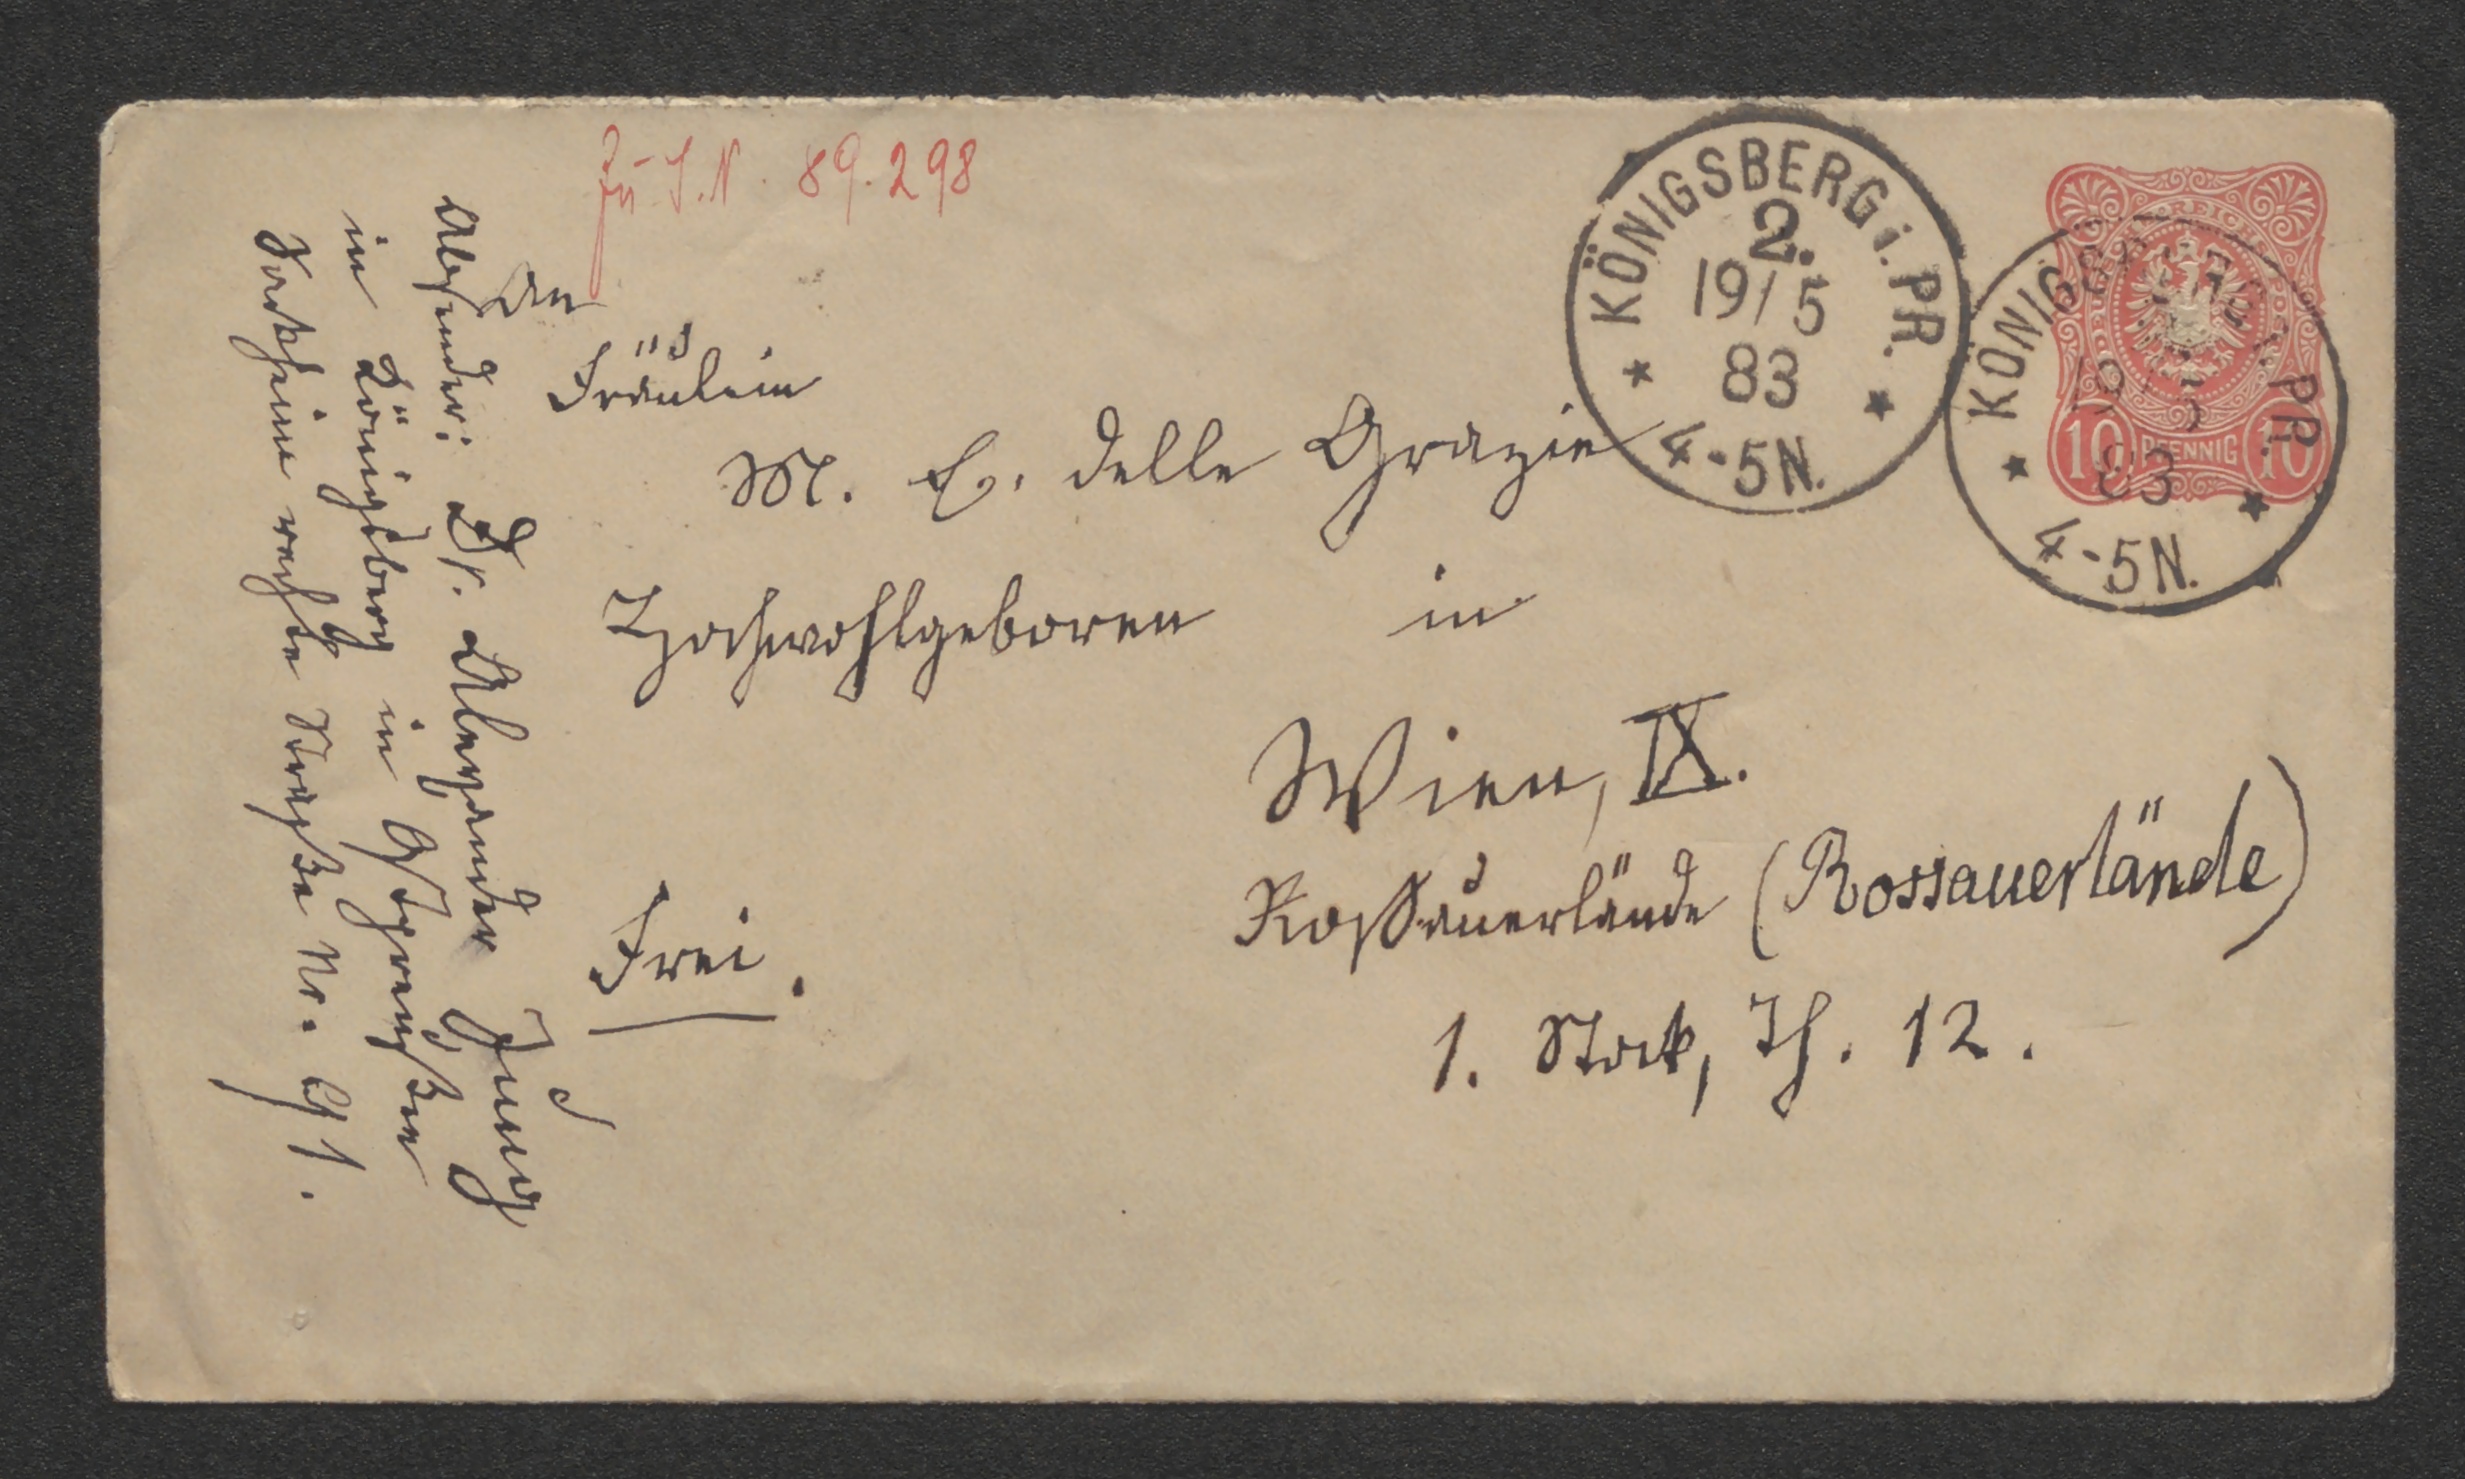 Zu I.N. 89.298
An
Fräulein
M. E. delle Grazie
Hochwohlgeboren in
Wien, IX.
Roßauerlände (Rossauerlände)
1. Stock, Th. 12.
Frei.
Absender: Dr. Alexander Jung
in Königsberg in Ostpreußen
Sackheim rechte Straße Nr. 91.
KÖNIGSBERG i. PR.
2.
19/5
83
4-5N.
KÖNIGSBERG i. PR.
19/5
83
4-5N.
10 PFENNIG 10